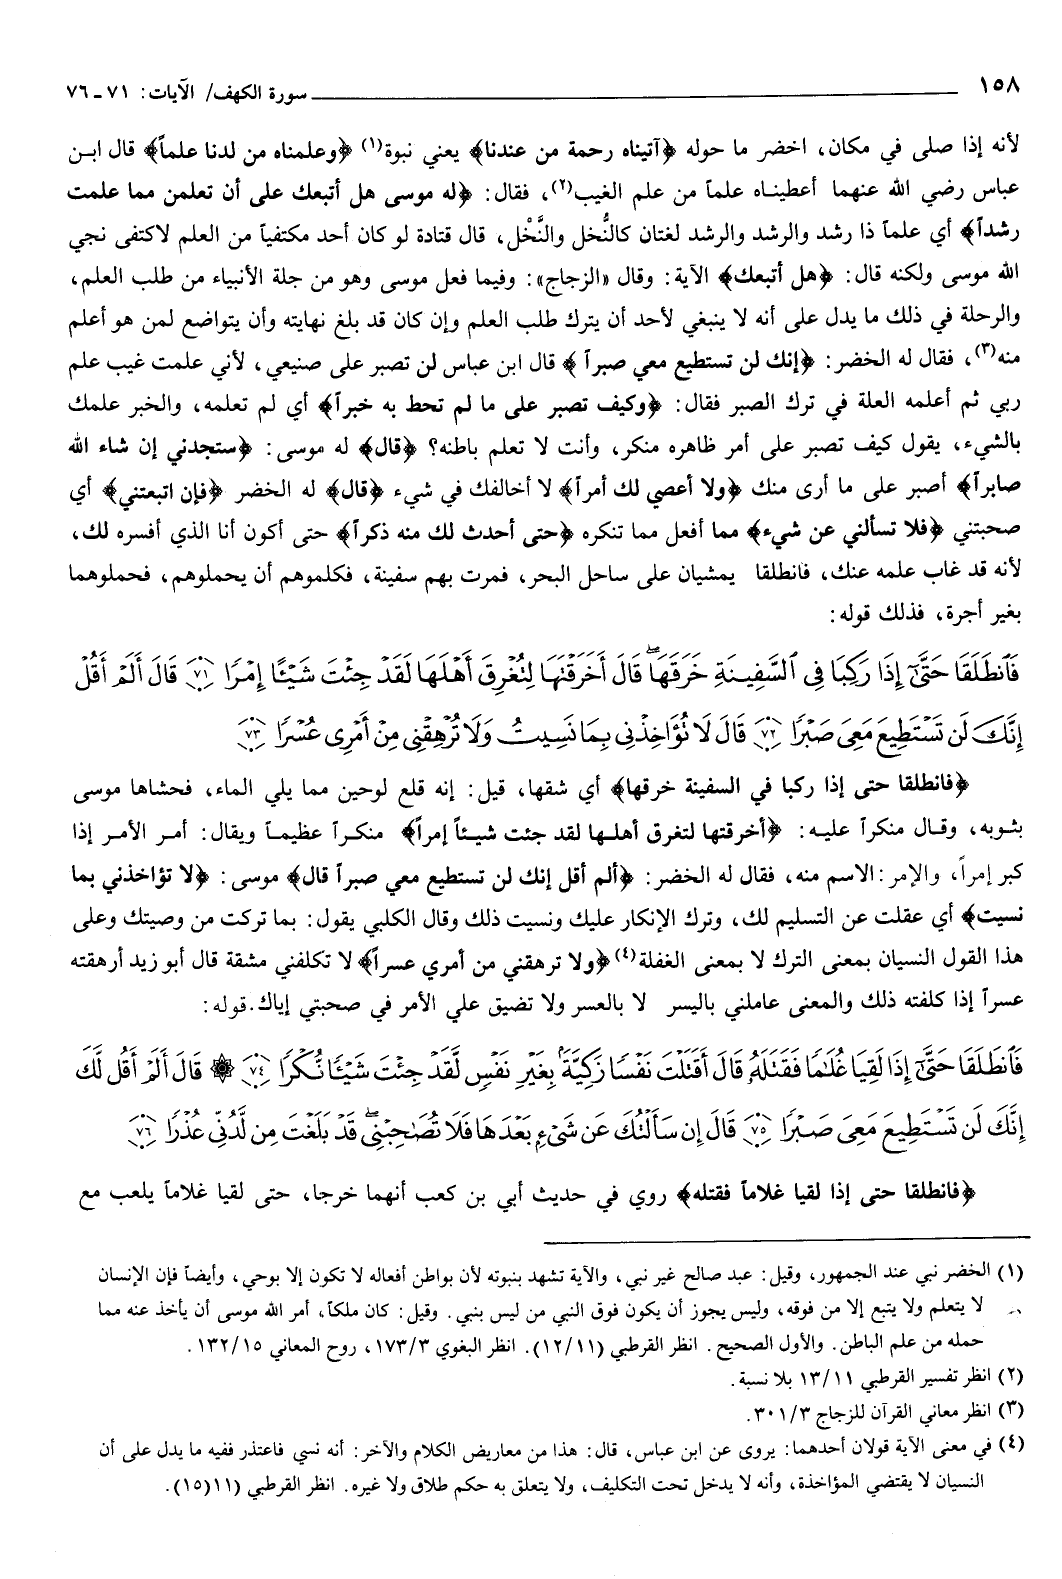 ١٥٨ سورة الكهف/ الآيات: ٧١ ـ ٧٦
لأنه إذا صلى في مكان، اخضر ما حوله ﴿آتيناه رحمة من عندنا﴾ يعني نبوة(١) ﴿وعلمناه من لدنا علماً﴾ قال ابـن
عباس رضي الله عنهما أعطينـاه علماً من علم الغيب(٢)، فقال: ﴿له موسى هل أتبعك على أن تعلمن مما علمت
رشداً﴾ أي علماً ذا رشد والرشد والرشد لغتان كالنُّخل والنَّخْل، قال قتادة لو كان أحد مكتفياً من العلم لاكتفى نجي
الله موسى ولكنه قال: ﴿هل أتبعك﴾ الآية: وقال «الزجاج»: وفيما فعل موسى وهو من جلة الأنبياء من طلب العلم،
والرحلة في ذلك ما يدل على أنه لا ينبغي لأحد أن يترك طلب العلم وإن كان قد بلغ نهايته وأن يتواضع لمن هو أعلم
منه(٣)، فقال له الخضر: ﴿إنك لن تستطيع معي صبراً﴾ قال ابن عباس لن تصبر على صنيعي، لأني علمت غيب علم
ربي ثم أعلمه العلة في ترك الصبر فقال: ﴿وكيف تصبر على ما لم تحط به خبراً﴾ أي لم تعلمه، والخبر علمك
بالشيء، يقول كيف تصبر على أمر ظاهره منكر، وأنت لا تعلم باطنه؟ ﴿قال﴾ له موسى: ﴿ستجدني إن شاء الله
صابراً﴾ أصبر على ما أرى منك ﴿ولا أعصي لك أمراً﴾ لا أخالفك في شيء ﴿قال﴾ له الخضر ﴿فإن اتبعتني﴾ أي
صحبتني ﴿فلا تسألني عن شيء﴾ مما أفعل مما تنكره ﴿حتى أحدث لك منه ذكراً﴾ حتى أكون أنا الذي أفسره لك،
لأنه قد غاب علمه عنك، فانطلقا يمشيان على ساحل البحر، فمرت بهم سفينة، فكلموهم أن يحملوهم، فحملوهما
بغير أجرة، فذلك قوله:
فَٱنطَلَقَا حَتَّىٰٓ إِذَا رَكِبَا فِى ٱلسَّفِينَةِ خَرَقَهَاۖ قَالَ أَخَرَقْتَهَا لِتُغْرِقَ أَهْلَهَا لَقَدْ جِئْتَ شَيْـًٔا إِمْرًا ٧١ قَالَ أَلَمْ أَقُلْ
إِنَّكَ لَن تَسْتَطِيعَ مَعِىَ صَبْرًا ٧٢ قَالَ لَا تُؤَاخِذْنِى بِمَا نَسِيتُ وَلَا تُرْهِقْنِى مِنْ أَمْرِى عُسْرًا ٧٣
﴿فانطلقا حتى إذا ركبا في السفينة خرقها﴾ أي شقها، قيل: إنه قلع لوحين مما يلي الماء، فحشاها موسى
بثـوبه، وقـال منكراً عليـه: ﴿أخرقتها لتغرق أهلـها لقد جئت شيـئاً إمراً﴾ منكـراً عظيمـاً ويقال: أمـر الأمـر إذا
كبر إمراً، والإمر: الاسم منه، فقال له الخضر: ﴿ألم أقل إنك لن تستطيع معي صبراً قال﴾ موسى: ﴿لا تؤاخذني بما
نسيت﴾ أي عقلت عن التسليم لك، وترك الإنكار عليك ونسيت ذلك وقال الكلبي يقول: بما تركت من وصيتك وعلى
هذا القول النسيان بمعنى الترك لا بمعنى الغفلة(٤) ﴿ولا ترهقني من أمري عسراً﴾ لا تكلفني مشقة قال أبو زيد أرهقته
عسراً إذا كلفته ذلك والمعنى عاملني باليسر لا بالعسر ولا تضيق علي الأمر في صحبتي إياك. قوله:
فَٱنطَلَقَا حَتَّىٰٓ إِذَا لَقِيَا غُلَٰمًا فَقَتَلَهُۥ قَالَ أَقَتَلْتَ نَفْسًا زَكِيَّةًۢ بِغَيْرِ نَفْسٍ لَّقَدْ جِئْتَ شَيْـًٔا نُّكْرًا ٧٤ ۞ قَالَ أَلَمْ أَقُل لَّكَ
إِنَّكَ لَن تَسْتَطِيعَ مَعِىَ صَبْرًا ٧٥ قَالَ إِن سَأَلْتُكَ عَن شَىْءٍۭ بَعْدَهَا فَلَا تُصَٰحِبْنِىۖ قَدْ بَلَغْتَ مِن لَّدُنِّى عُذْرًا ٧٦
﴿فانطلقا حتى إذا لقيا غلاماً فقتله﴾ روي في حديث أبي بن كعب أنهما خرجا، حتى لقيا غلاماً يلعب مع
(١) الخضر نبي عند الجمهور، وقيل: عبد صالح غير نبي، والآية تشهد بنبوته لأن بواطن أفعاله لا تكون إلا بوحي، وأيضاً فإن الإنسان
لا يتعلم ولا يتبع إلا من فوقه، وليس يجوز أن يكون فوق النبي من ليس بنبي. وقيل: كان ملكاً، أمر الله موسى أن يأخذ عنه مما
حمله من علم الباطن. والأول الصحيح. انظر القرطبي (١٢/١١). انظر البغوي ١٧٣/٣، روح المعاني ١٣٢/١٥.
(٢) انظر تفسير القرطبي ١٣/١١ بلا نسبة.
(٣) انظر معاني القرآن للزجاج ٣٠١/٣.
(٤) في معنى الآية قولان أحدهما: يروى عن ابن عباس، قال: هذا من معاريض الكلام والآخر: أنه نسي فاعتذر ففيه ما يدل على أن
النسيان لا يقتضي المؤاخذة، وأنه لا يدخل تحت التكليف، ولا يتعلق به حكم طلاق ولا غيره. انظر القرطبي (١١(١٥).